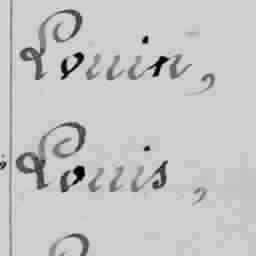 Louin,
Louis,